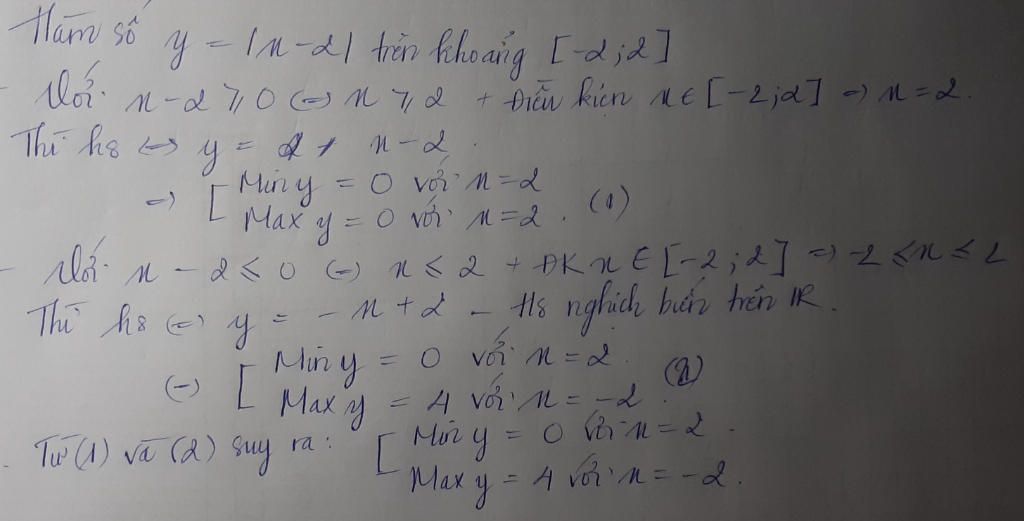 Hàm số y = |x-2| trên khoảng [-2;2]
- Với x-2 ⩾ 0 ⇔ x ⩾ 2 + Điều kiện x ∈ [-2;2] ⇒ x = 2.
Thì hs ⇔ y = x-2.
⇒ [ Min y = 0 với x=2
Max y = 0 với x=2. (1)
- Với x - 2 ⩽ 0 ⇔ x ⩽ 2 + ĐK x ∈ [-2;2] ⇒ -2 ⩽ x ⩽ 2
Thì hs ⇔ y = -x+2 - Hs nghịch biến trên R.
⇔ [ Min y = 0 với x=2. (2)
Max y = 4 với x = -2
. Từ (1) và (2) suy ra: [ Min y = 0 với x=2.
Max y = 4 với x = -2.